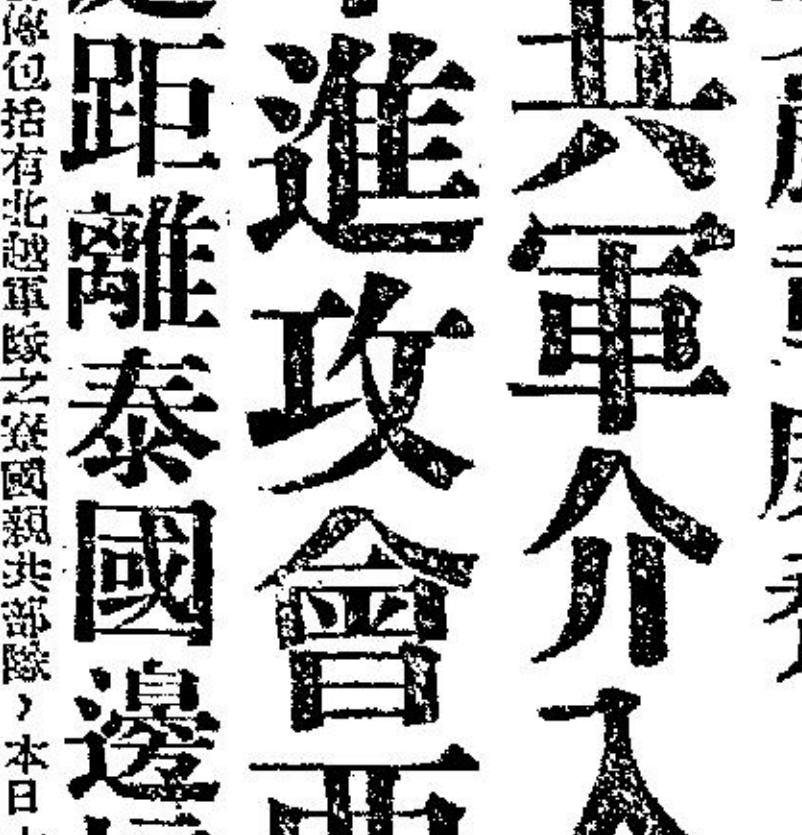 共軍介入
進攻會
距離泰國邊
隊包括有北越軍隊之寮國親共部隊，本日